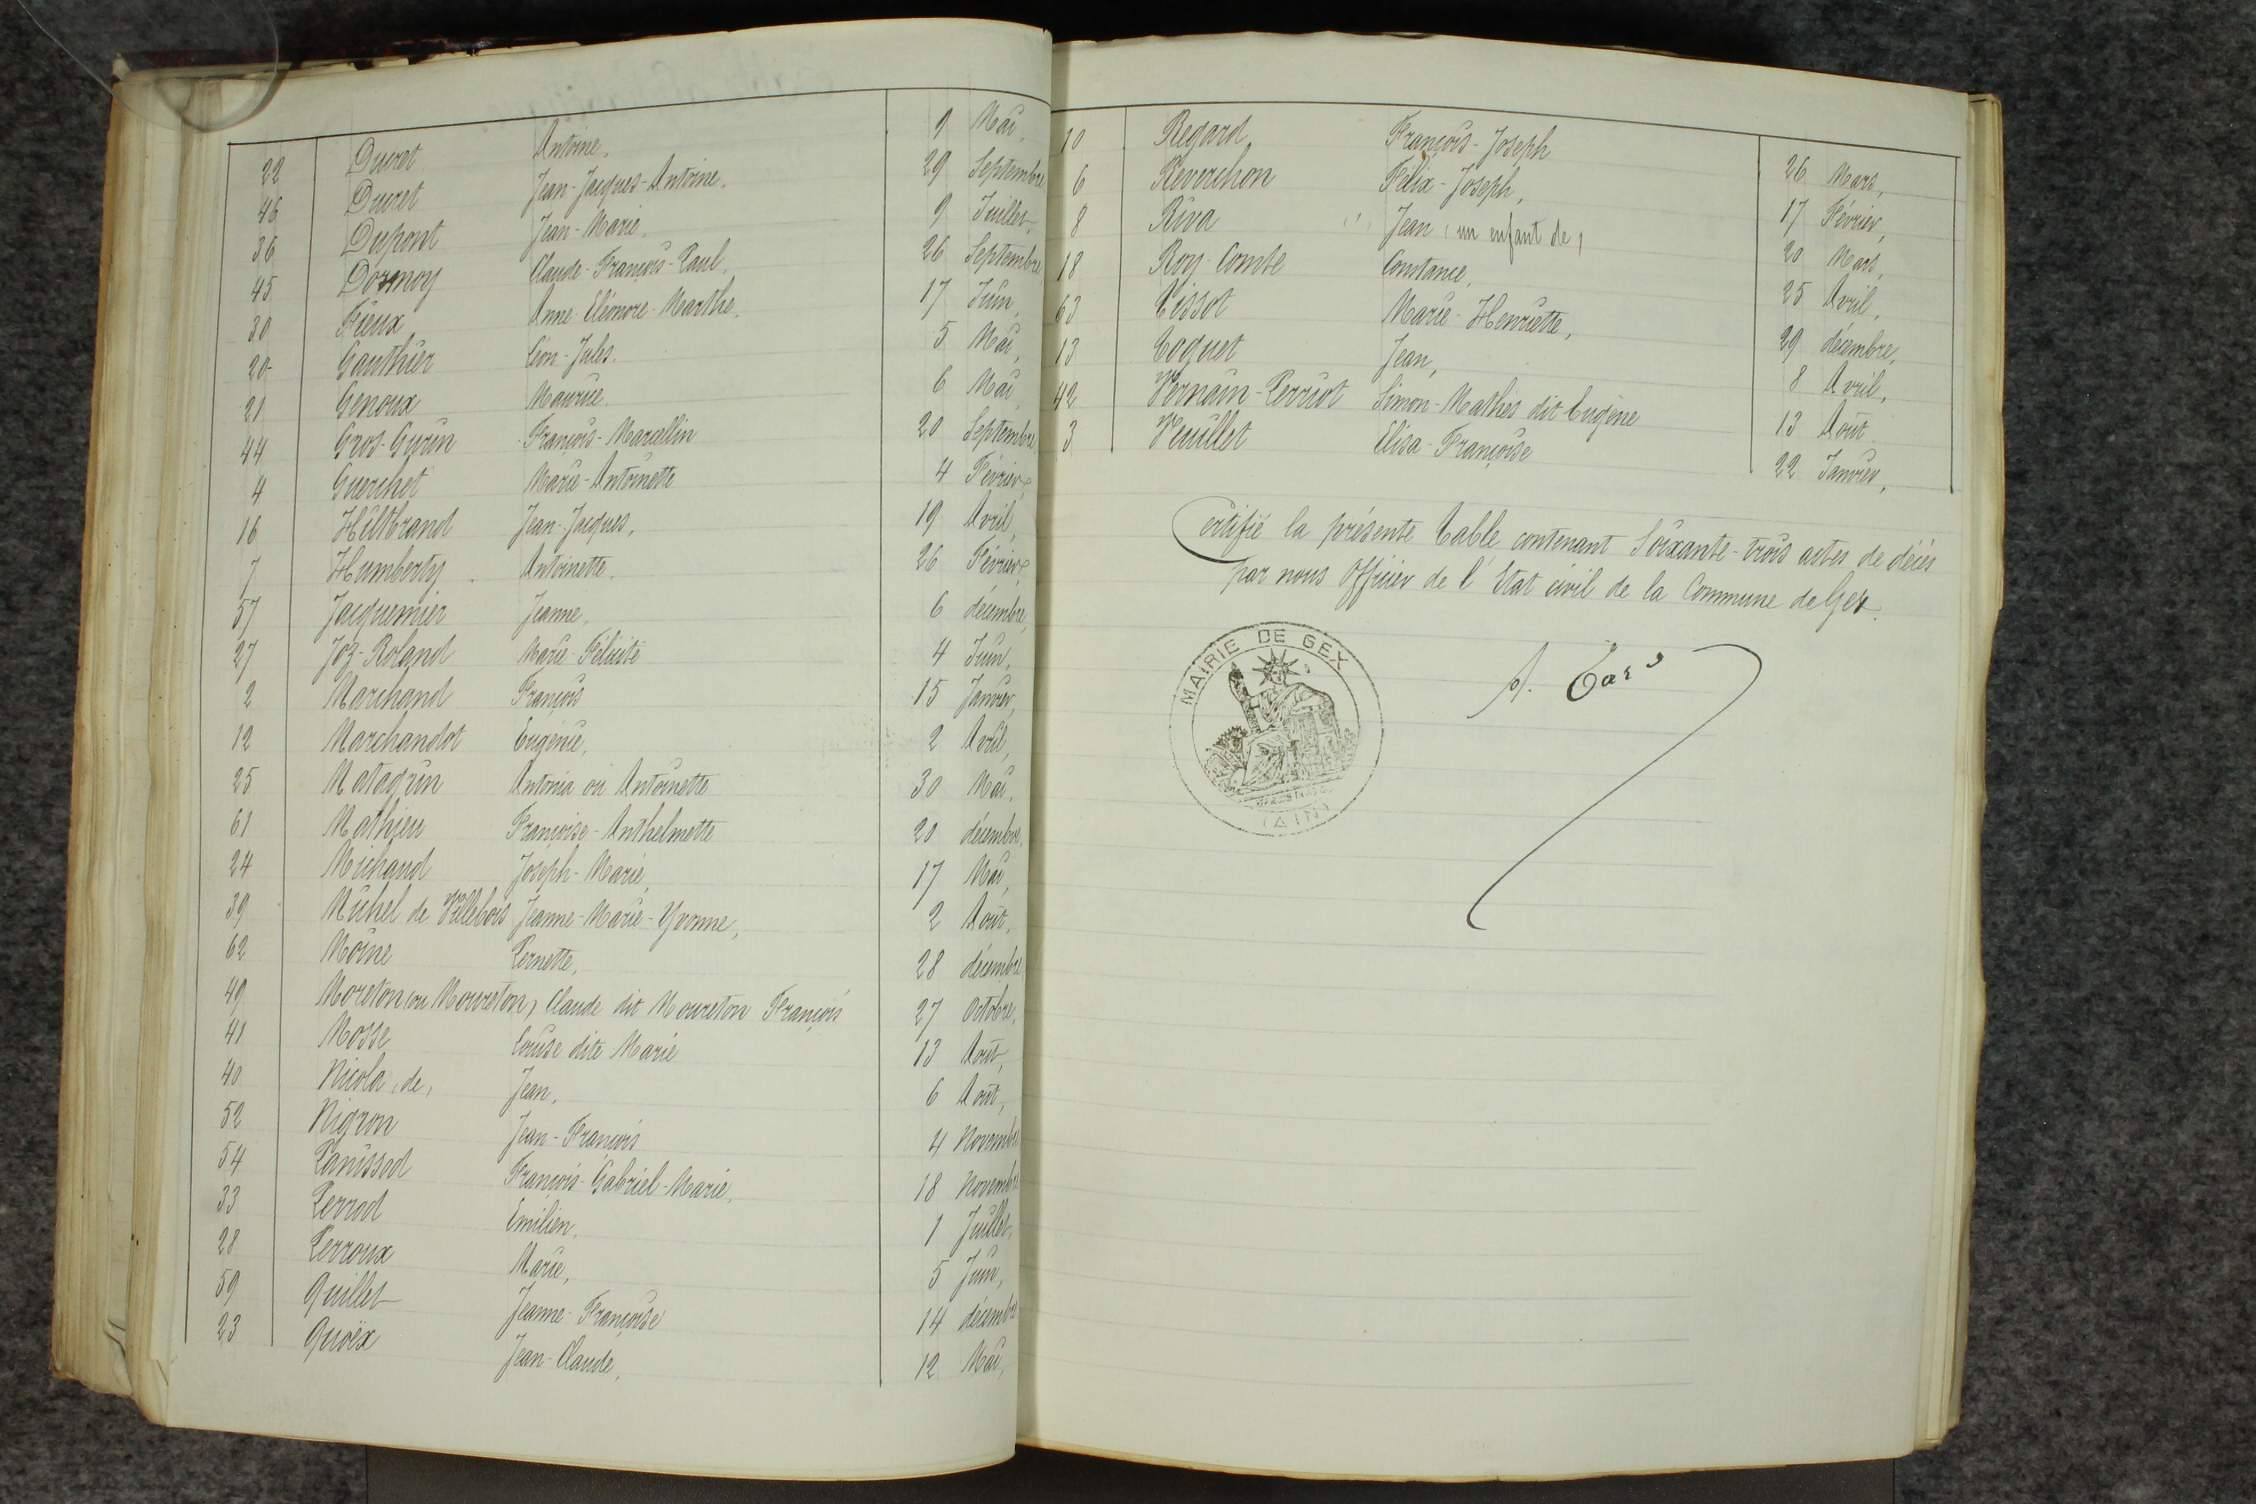 22 Ducret Antoine. 9 Mai,
46 Ducret Jean-Jacques-Antoine. 29 Septembre
36 Dupont Jean-Marie. 9 Juillet,
45 Dormoy Claude-François-Paul. 26 Septembre
30 Fieux Anne-Eléonore-Marthe. 17 Juin,
20 Gauthier Léon-Jules. 5 Mai,
21 Genoux Maurice. 6 Mai
44 Gros-Gurin François-Marcellin 20 Septembre
4 Guerchet Marie-Antoinette 4 Février,
16 Hiltbrand Jean-Jacques, 19 Avril,
7 Humberty Antoinette. 26 Février,
57 Jacquemier Jeanne, 6 décembre,
27 Joz-Roland Marie-Félicité 4 Juin,
2 Marchand François 15 Janvier,
12 Marchandot Eugénie, 2 Avril,
25 Matagrin Antonia ou Antoinette 30 Mai,
61 Mathieu Françoise-Anthelmette 20 décembre.
24 Michaud Joseph-Marie, 17 Mai,
39 Michel de Villebois Jeanne-Marie-Yvonne, 2 Août,
62 Moine Pernette, 28 décembre
49 Moreton (ou Moureton) Claude dit Moureton François 27 Octobre,
41 Mosse Louise dite Marie 13 Août,
40 Nicola (de) Jean, 6 Août,
52 Nigron Jean-François 4 Novembre
54 Panissod François-Gabriel-Marie. 18 Novembre
33 Perrod Emilien. 1 Juillet,
28 Perroux Marie, 5 Juin,
59 Quillet Jeanne-Françoise 14 décembre
23 Quoëx Jean-Claude, 12 Mai,
10 Regard François-Joseph 26 Mars,
6 Reverchon Félix-Joseph, 17 Février,
8 Riva Jean (un enfant de) 20 Mars,
18 Roy-Comte Constance, 25 Avril,
63 Tissot Marie-Henriette, 29 décembre,
13 Toquet Jean, 8 Avril,
42 Vernain-Perriot Simon-Mathes dit Eugène 13 Août
3 Veuillet Elisa-Françoise 22 Janvier,
Certifié la présente Table contenant Soixante-trois actes de décès
par nous Officier de l'Etat civil de la Commune de Gex.
MAIRIE DE GEX
(AIN)